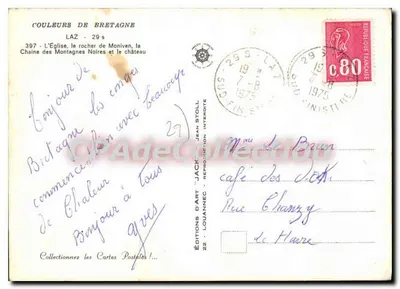 COULEURS DE BRETAGNE
LAZ - 29 s
397 - L'Église, le rocher de Moniven, la
Chaine des Montagnes Noires et le château
Bonjour de
Bretagne les congés
commencent bien avec beaucoup
de Chaleur
Bonjour à tous
Yves
Collectionnez les Cartes Postales !...
EDITIONS D'ART "JACK"
22 - LOUANNEC - REPRODUCTION INTERDITE
JEAN STOLL
29 S - LAZ
SUD-FINISTERE
0,80
CPADeCollection.fr
Mme Le Brun
café des
Rue Chanzy
Le Havre